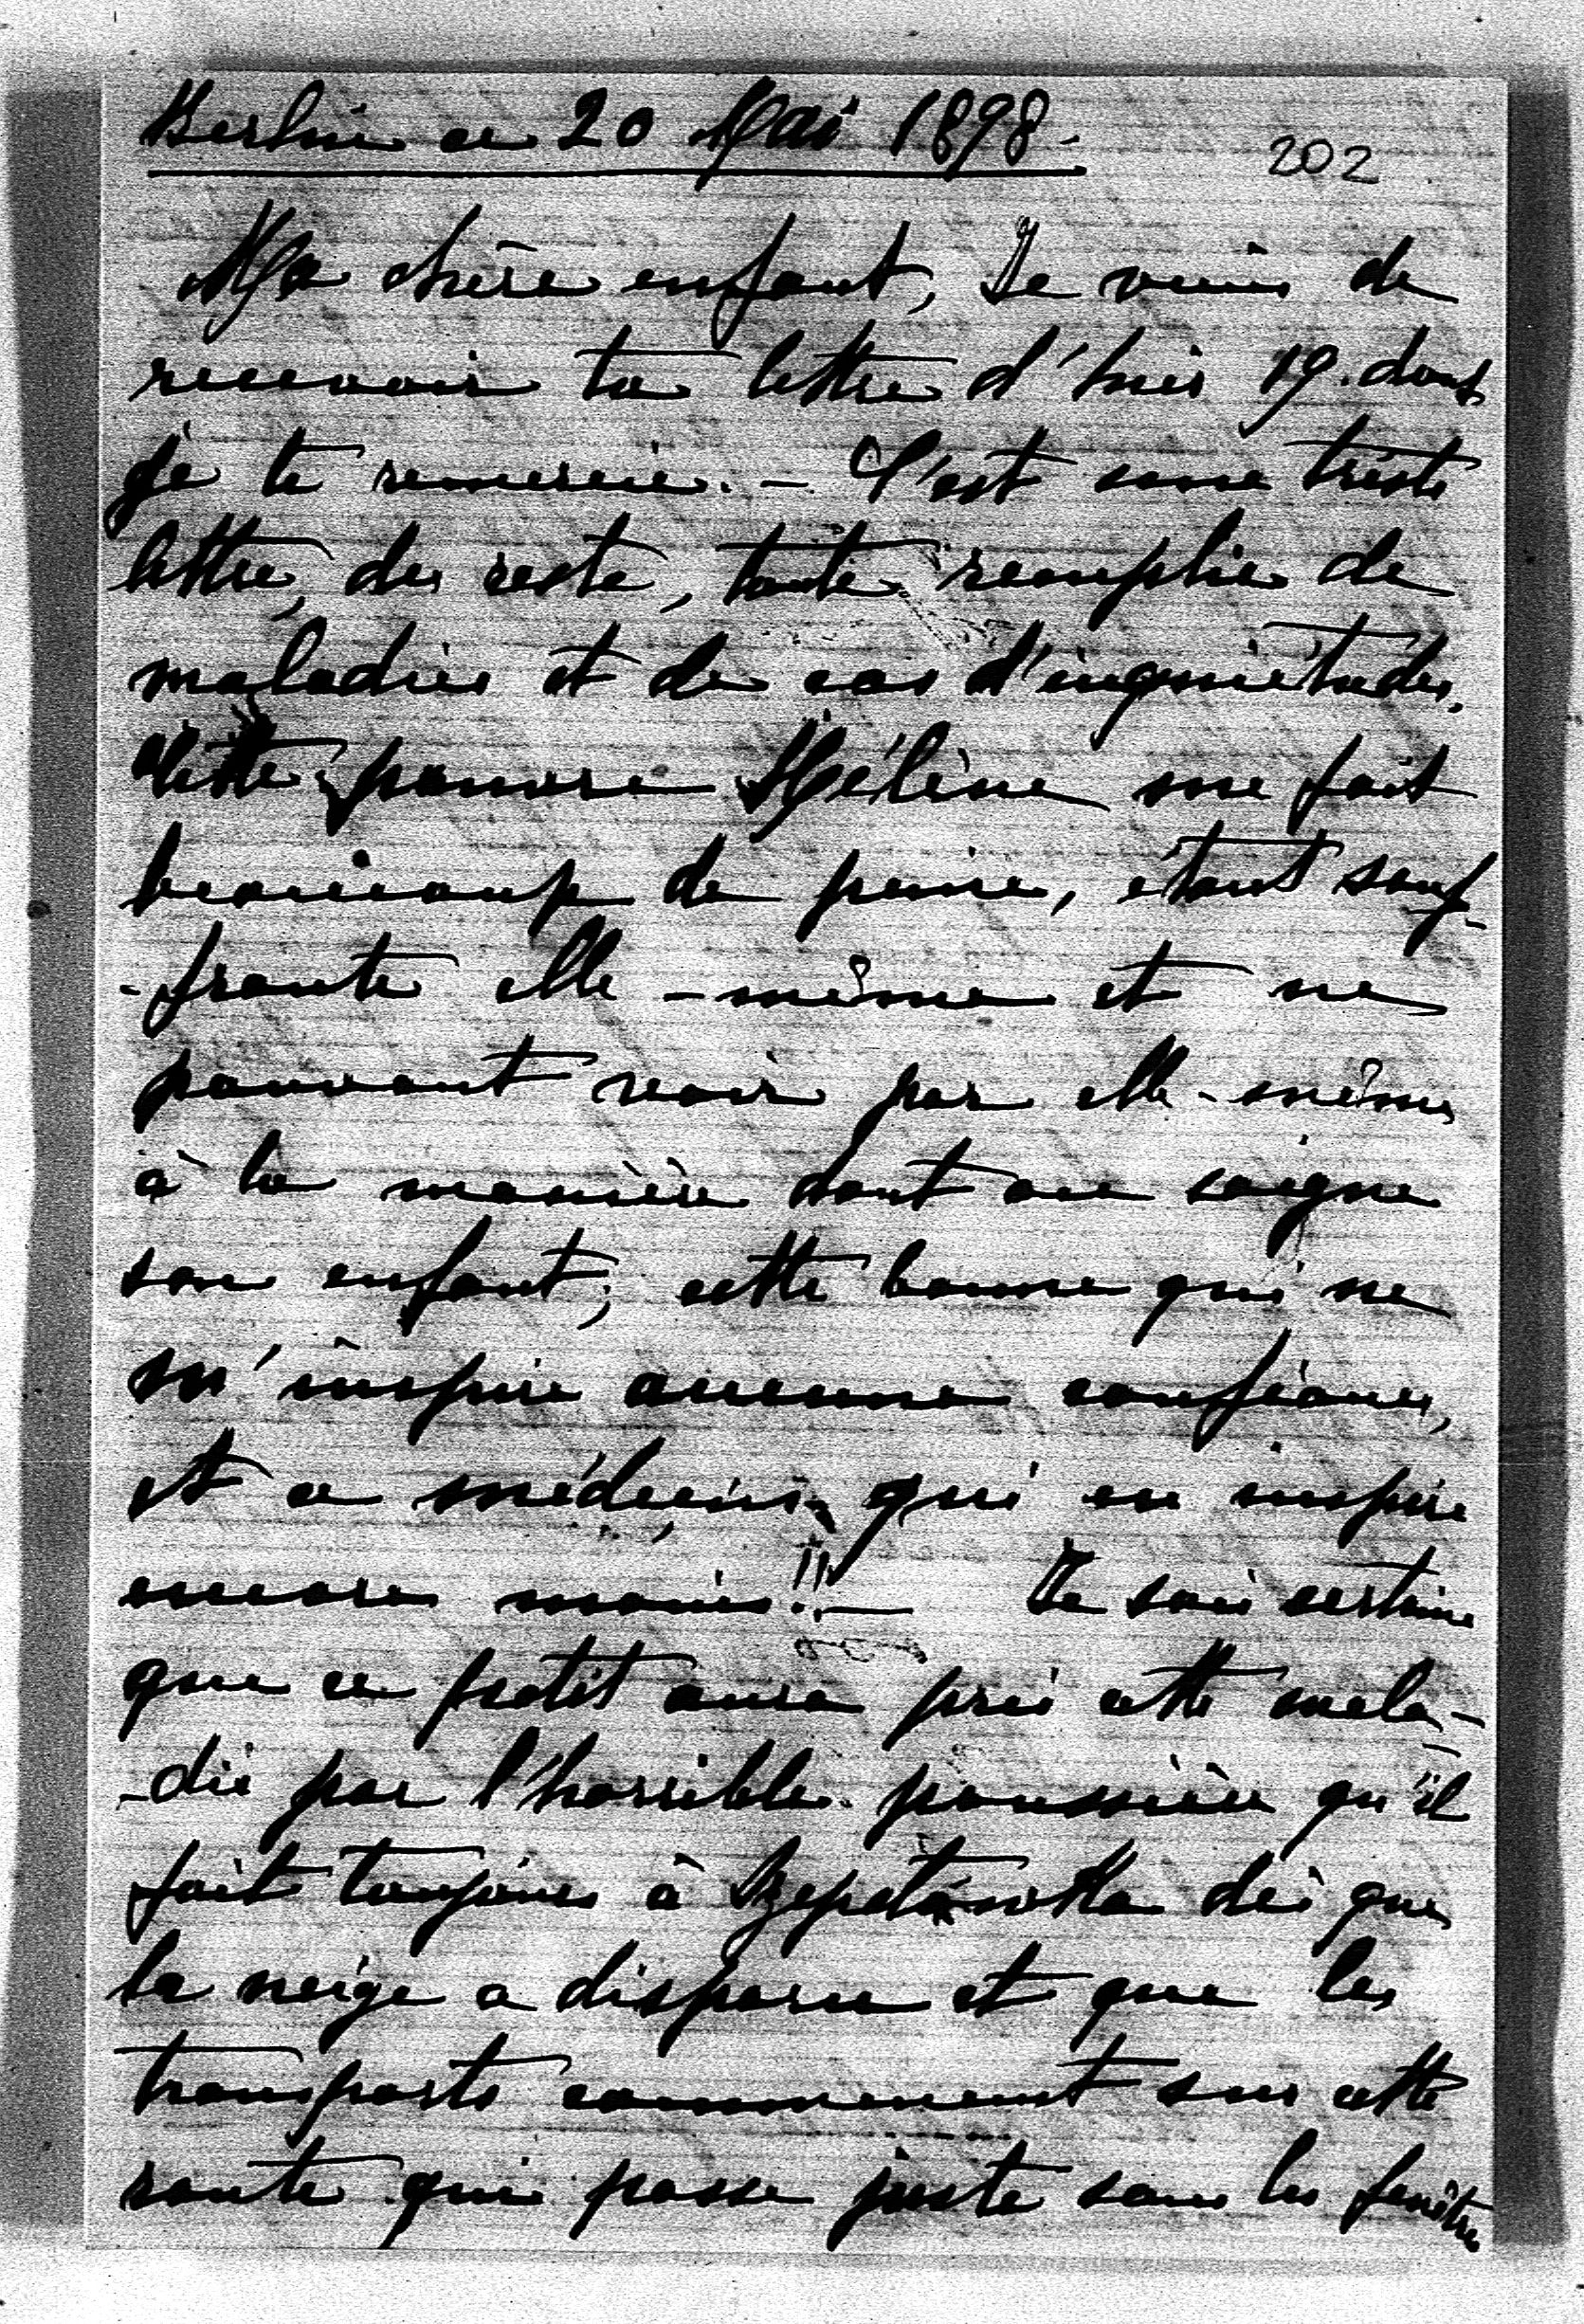 Berlin ce 20 Mai 1898.
202
Ma chère enfant, Je viens de
recevoir ta lettre d'hier 19. dont
je te remercie. - C'est une triste
lettre, du reste, toute remplie de
maladies et de cas d'inquiétudes.
Cette pauvre Hélène me fait
beaucoup de peine, étant souf-
-frante elle-même et ne
pouvant voir par elle-même
à la manière dont on soigne
son enfant; cette bonne qui ne
m'inspire aucune confiance,
et ce médecin qui en inspire
encore moins!! - Je suis certaine
que ce petit aura pris cette mala-
-die par l'horrible poussière qu'il
fait toujours à Szepetowka dès que
la neige a disparu et que les
transports commencent sur cette
route qui passe juste sous les fenêtres